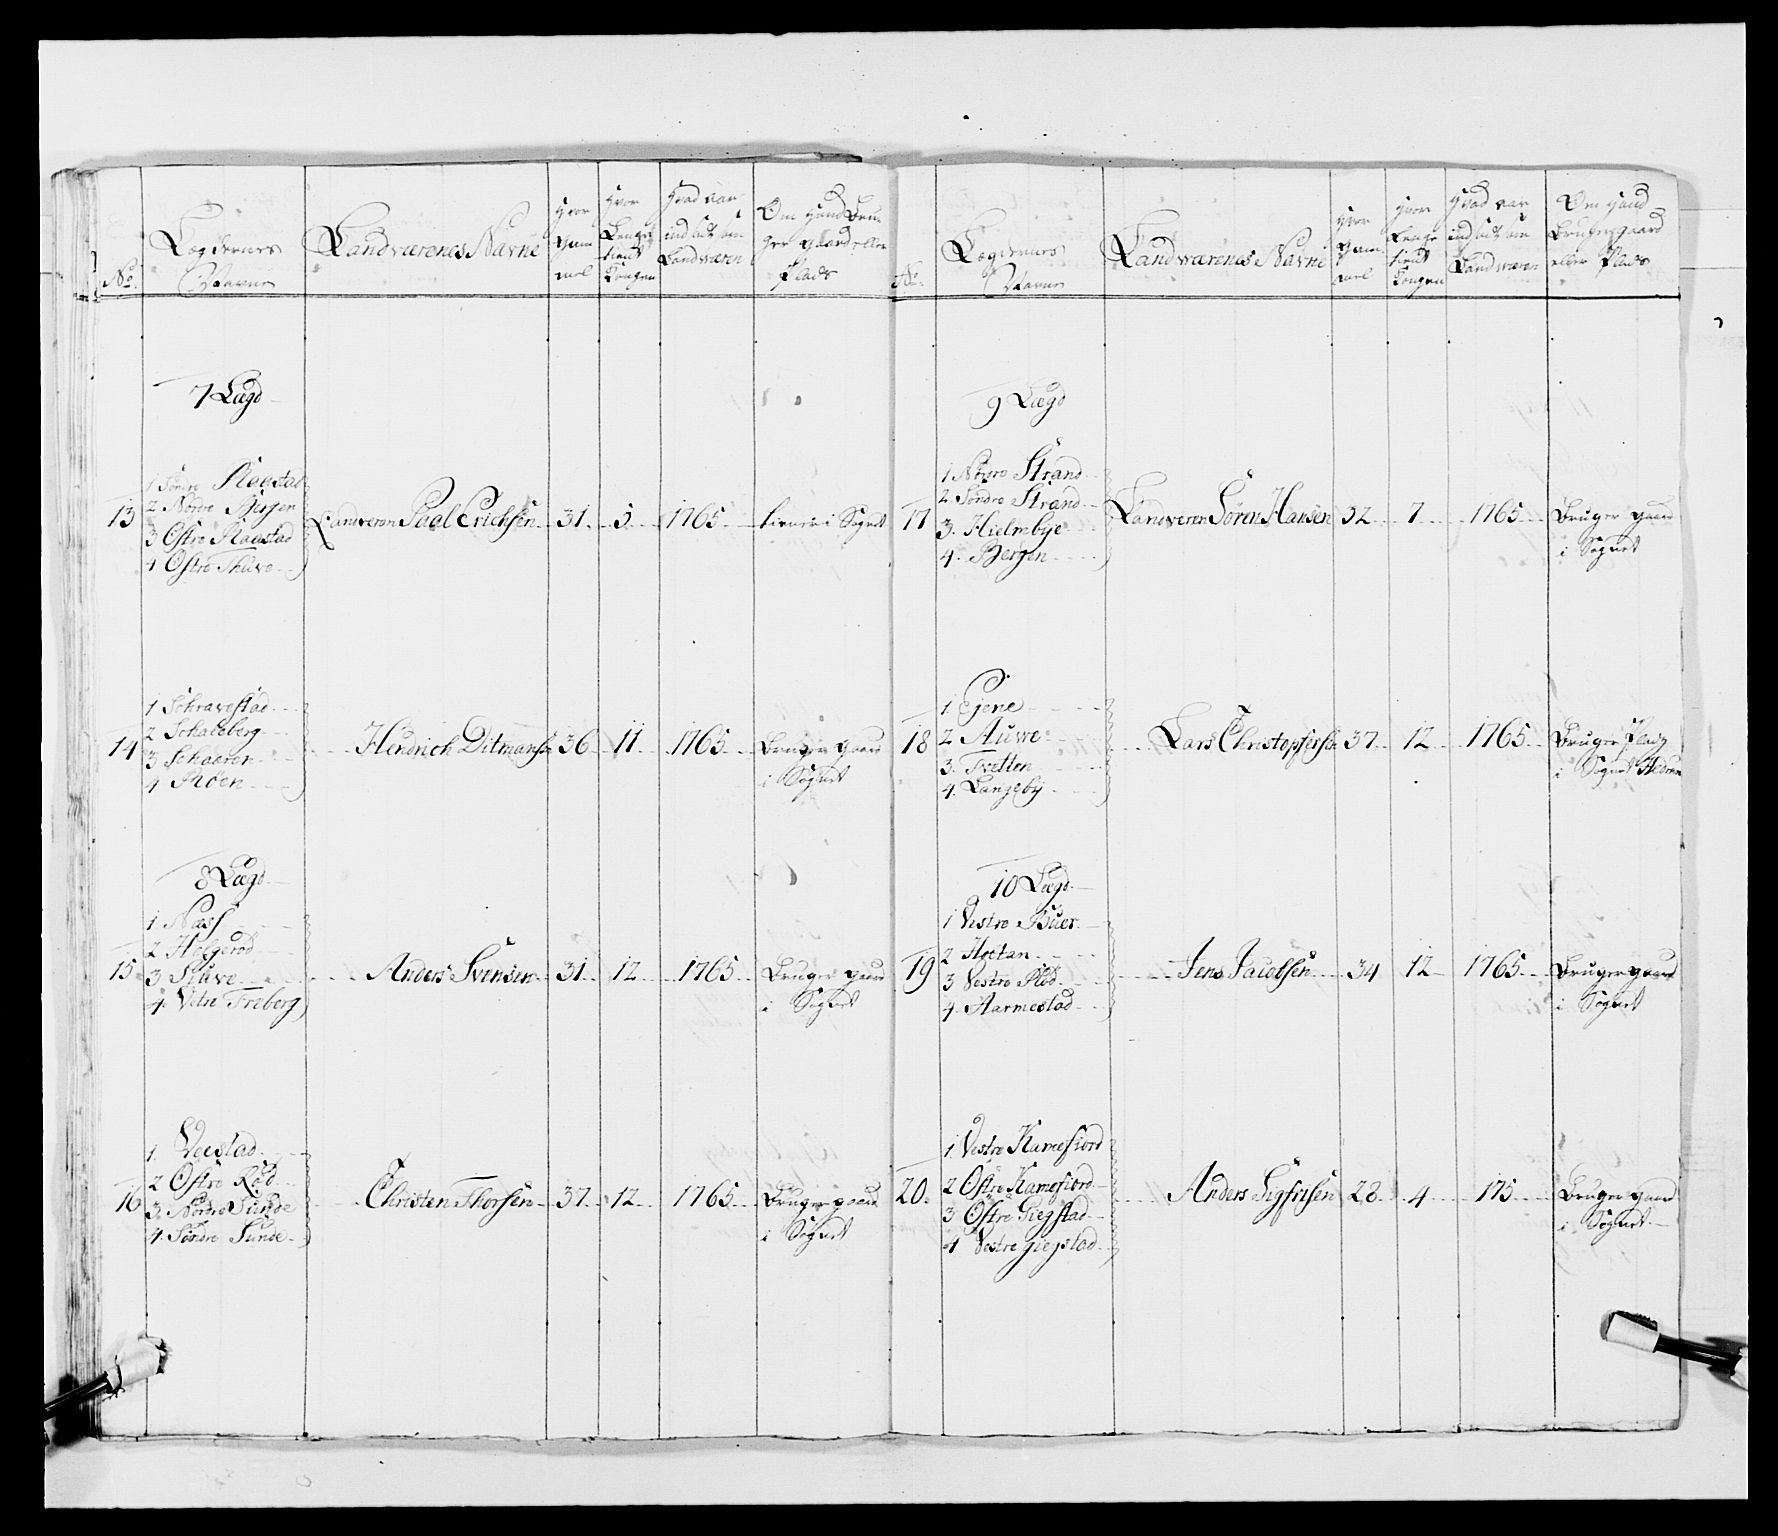 No.
Lægdernes
Navne
Landværenes Navne
Hvor
gam
mel
Hvor
Lenge
tient
Kongen
Hvad aar
indsat som
Landværen
Om hand Bru
ger gaard eller
Plads
7 Lægd
13
1 Søndre Raastad
2 Nordre Bergen
3 Østre Raastad
4 Østre Thuve
Landveren Paal Erichsen 31. 5. 1765. tiener i Sognet
14
1 Schravestad
2 Schaleberg
3 Schaaron
4 Moen
Hendrich Ditmansen 36 11 1765 Bruger gaard
i Sognet
8 Lægd
15
1 Næss
2 Holgerød
3 Stuve
4. Vitre Freberg
Anders Svensen 31. 12 1765 Bruger gaard
i Sognet
16
1. Veestad
2 Østre Rød
3. Nordre Sunde
4. Søndre Sunde
Christen Thorsen 37. 12 1765. Bruger gaard
i Sognet
No.
Lægdernes
Navne
Landværenes Navne
Hvor
gam
mel
Hvor
Lenge
tient
Kongen
Hvad aar
indsat som
Landværen
Om hand
Bruger gaard
eller Plads
9 Lægd
17
1 Nordre Strand
2. Søndre Strand
3. Hielmbye
4. Bergen
Landveren Søren Hansen 32 7 1765 Bruger gaard
i Sognet
18
1 Gjene
2 Auwe
3. Tvetten
4. Langeby
Lars Christophersen 37. 12 1765 Bruger Plads
i Sognet
10 Lægd
19
1 Vestre Buer
2 Hoctan
3 Vestre Rød
4. Aarmestad
Jens Jacobsen 34 12 1765. Bruger gaard
i Sognet
20.
1. Vestre Kamefiord
2 Østre Kamefiord
3 Østre Giegstad
4 Vestre giegstad
Anders Sigfrisen 28. 4 175 Bruger gaard
i Sognet